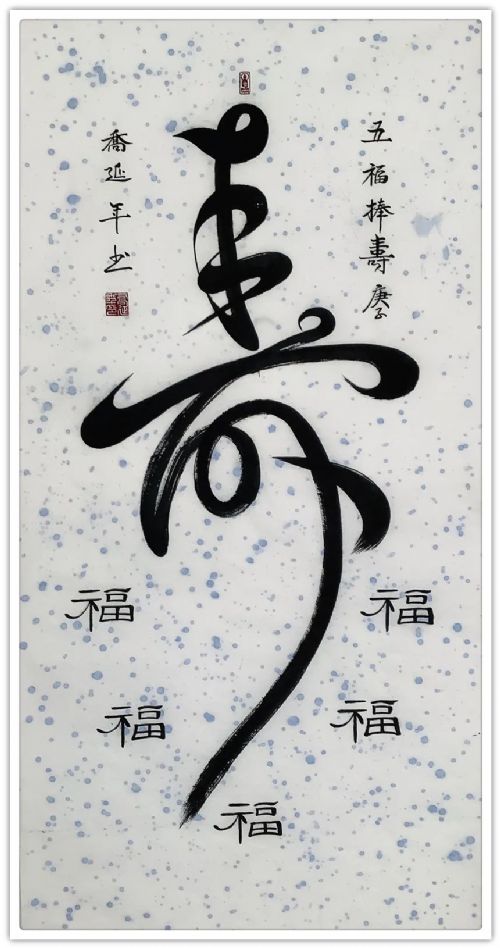 五福捧壽庚子
壽
喬延年书
福 福
福 福
福